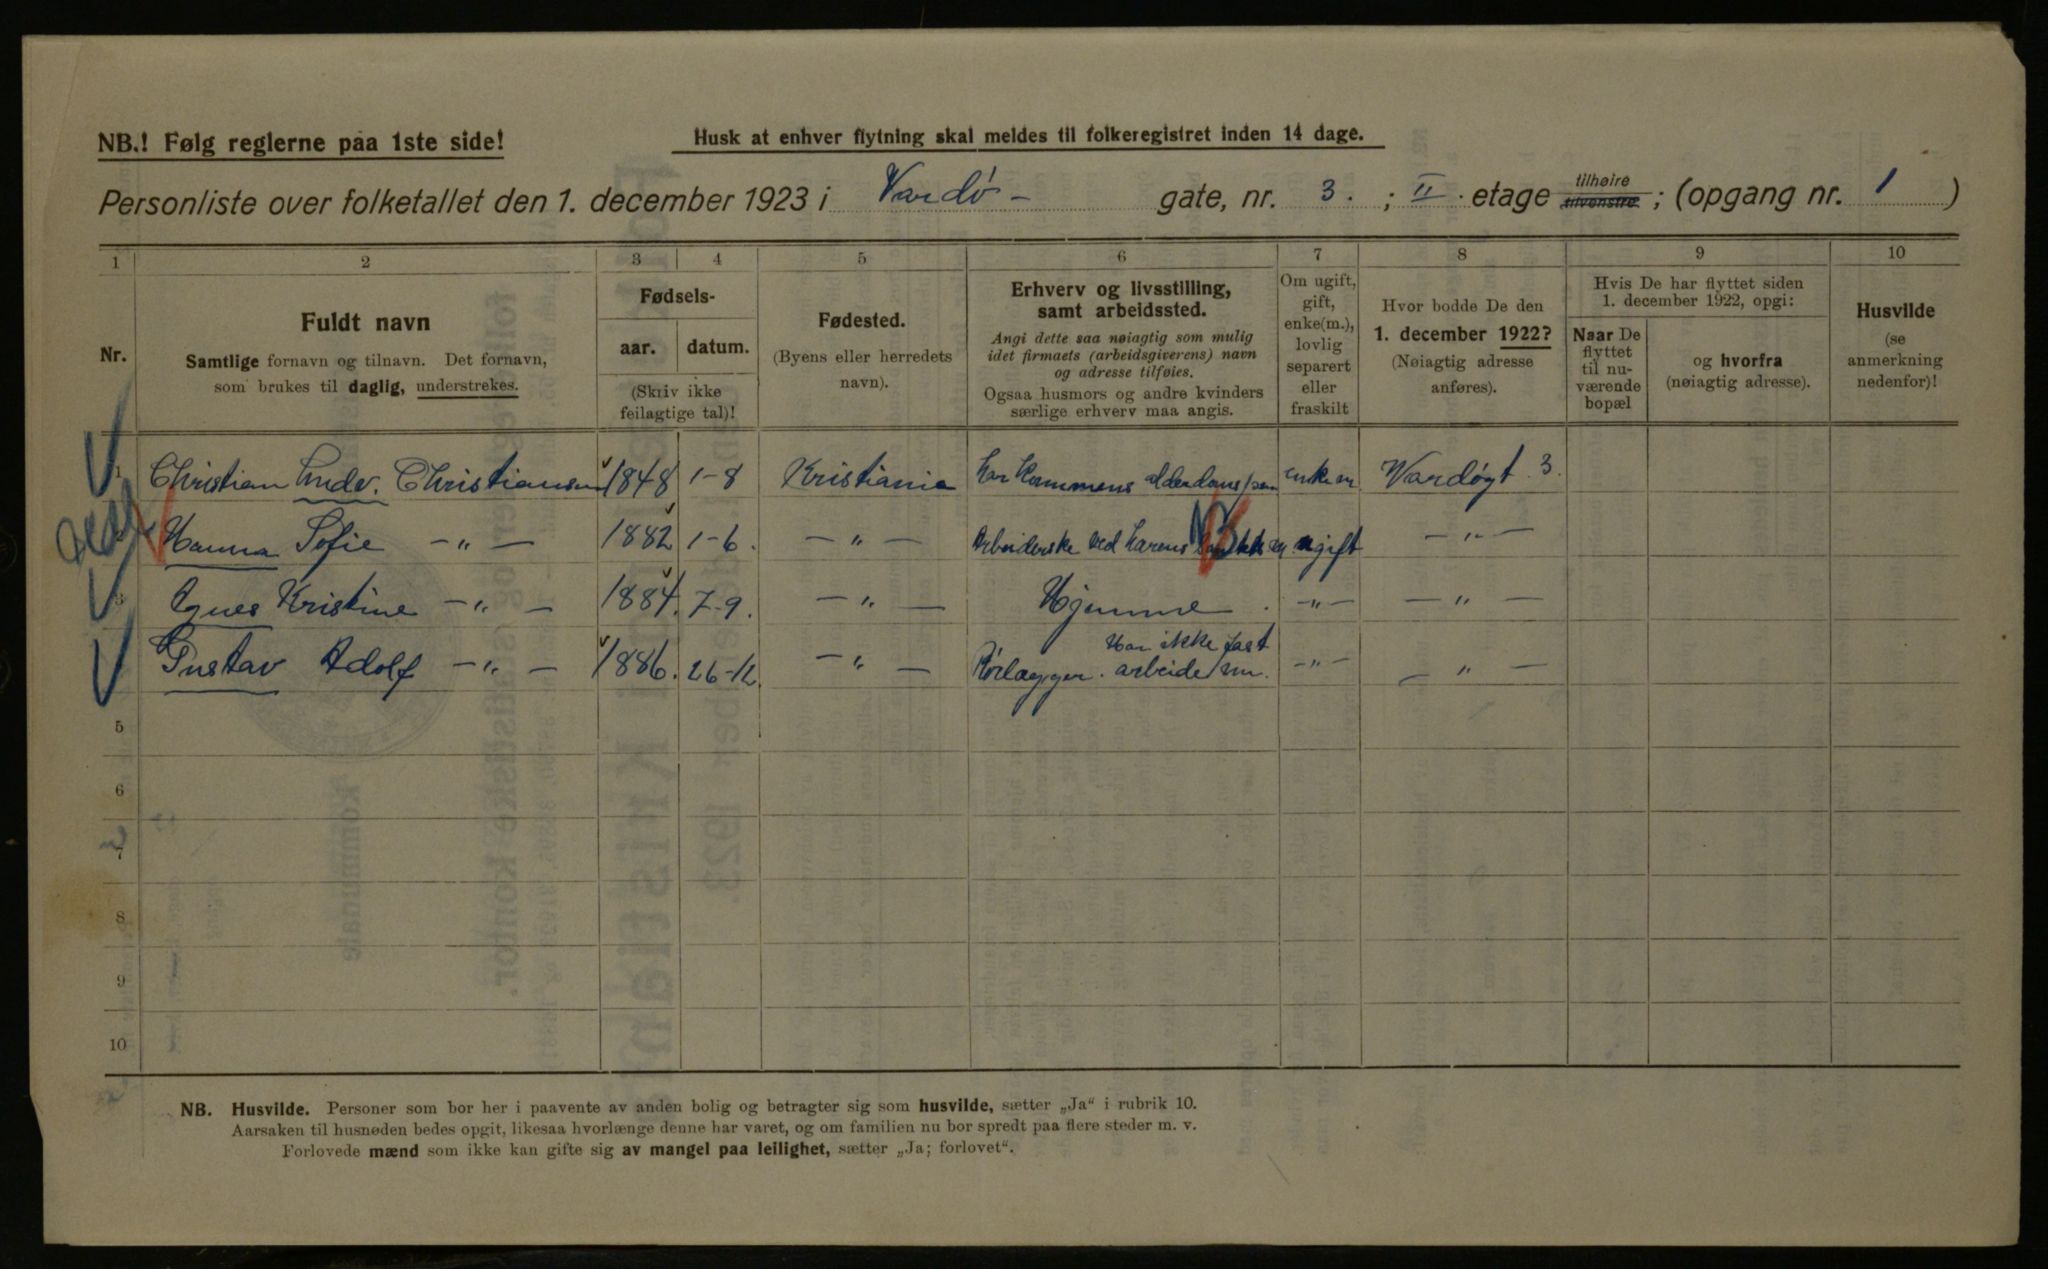 NB.! Følg reglerne paa 1ste side!
Husk at enhver flytning skal meldes til folkeregistret inden 14 dage.
Personliste over folketallet den 1. december 1923 i Vardø- gate, nr. 3. ; II. etage tilhøire tilvenstre ; (opgang nr. 1 )
1 2 3 4 5 6 7 8 9 10
Nr.
Fuldt navn
Samtlige fornavn og tilnavn. Det fornavn,
som brukes til daglig, understrekes.
Fødsels-
aar. datum.
(Skriv ikke
feilagtige tal)!
Fødested.
(Byens eller herredets
navn).
Erhverv og livsstilling,
samt arbeidssted.
Angi dette saa nøiagtig som mulig
idet firmaets (arbeidsgiverens) navn
og adresse tilføies.
Ogsaa husmors og andre kvinders
særlige erhverv maa angis.
Om ugift,
gift,
enke(m.),
lovlig
separert
eller
fraskilt
Hvor bodde De den
1. december 1922?
(Nøiagtig adresse
anføres).
Hvis De har flyttet siden
1. december 1922, opgi:
Naar De
flyttet
til nu-
værende
bopæl
og hvorfra
(nøiagtig adresse).
Husvilde
(se
anmerkning
nedenfor)!
1 Christian Ludv. Christiansen 1848 1-8 Kristiania har kommens alderdoms enkem Vardøgt. 3
Hanna Sofie -„- 1882 1-6. -„- Arbeiderske ved ugift -„-
3 Agnes Kristine -„- 1884. 7-9. -„- Hjemme. -„- -„-
Gustav Adolf -„- 1886. 26-12. -„- Rørlægger. Har ikke fast arbeide nu. -„- -„-
5
6
7
8
9
10
NB. Husvilde. Personer som bor her i paavente av anden bolig og betragter sig som husvilde, sætter „Ja“ i rubrik 10.
Aarsaken til husnøden bedes opgit, likesaa hvorlænge denne har varet, og om familien nu bor spredt paa flere steder m. v.
Forlovede mænd som ikke kan gifte sig av mangel paa leilighet, sætter „Ja; forlovet“.